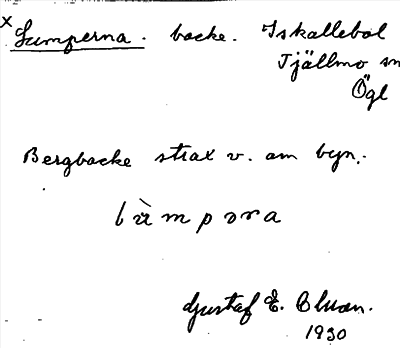 x Lumperna. backe. Iskallebol
Tjällmo sn
Ögl
Bergbacke strax v. om byn.
lùmpora
Gustaf E. Cluson.
1930